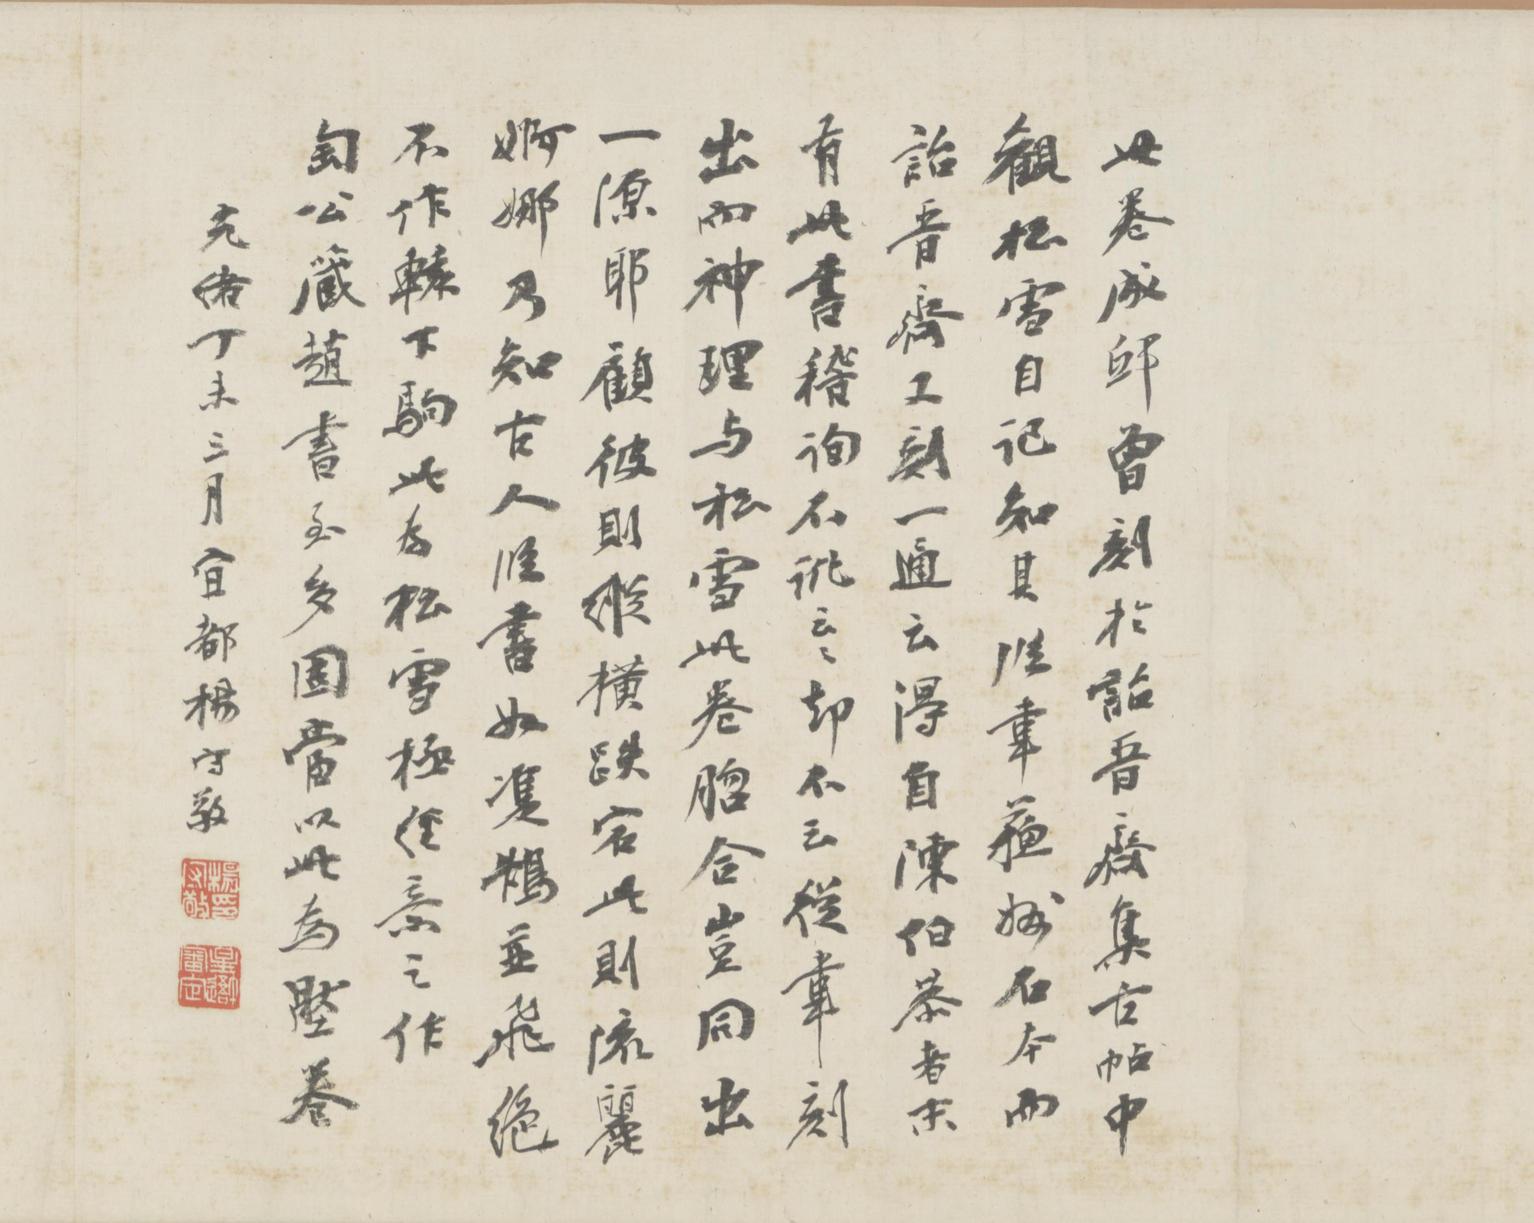 此卷成邸曾刻於詒晉齋集古帖中
觀松雪自記知其臨韋蘇州石本而
詒晉齋又刻一通云得自陳伯恭者末
有此書稽詢不訛云云却不云從韋刻
出而神理与松雪此卷脗合豈同出
一源耶顧彼則縱橫跌宕此則流麗
婀娜乃知古人臨書如雙鵠並飛絕
不作轅下駒此為松雪極經意之作
匋公藏趙書至多固當以此為壓卷
光緒丁未三月宜都楊守敬